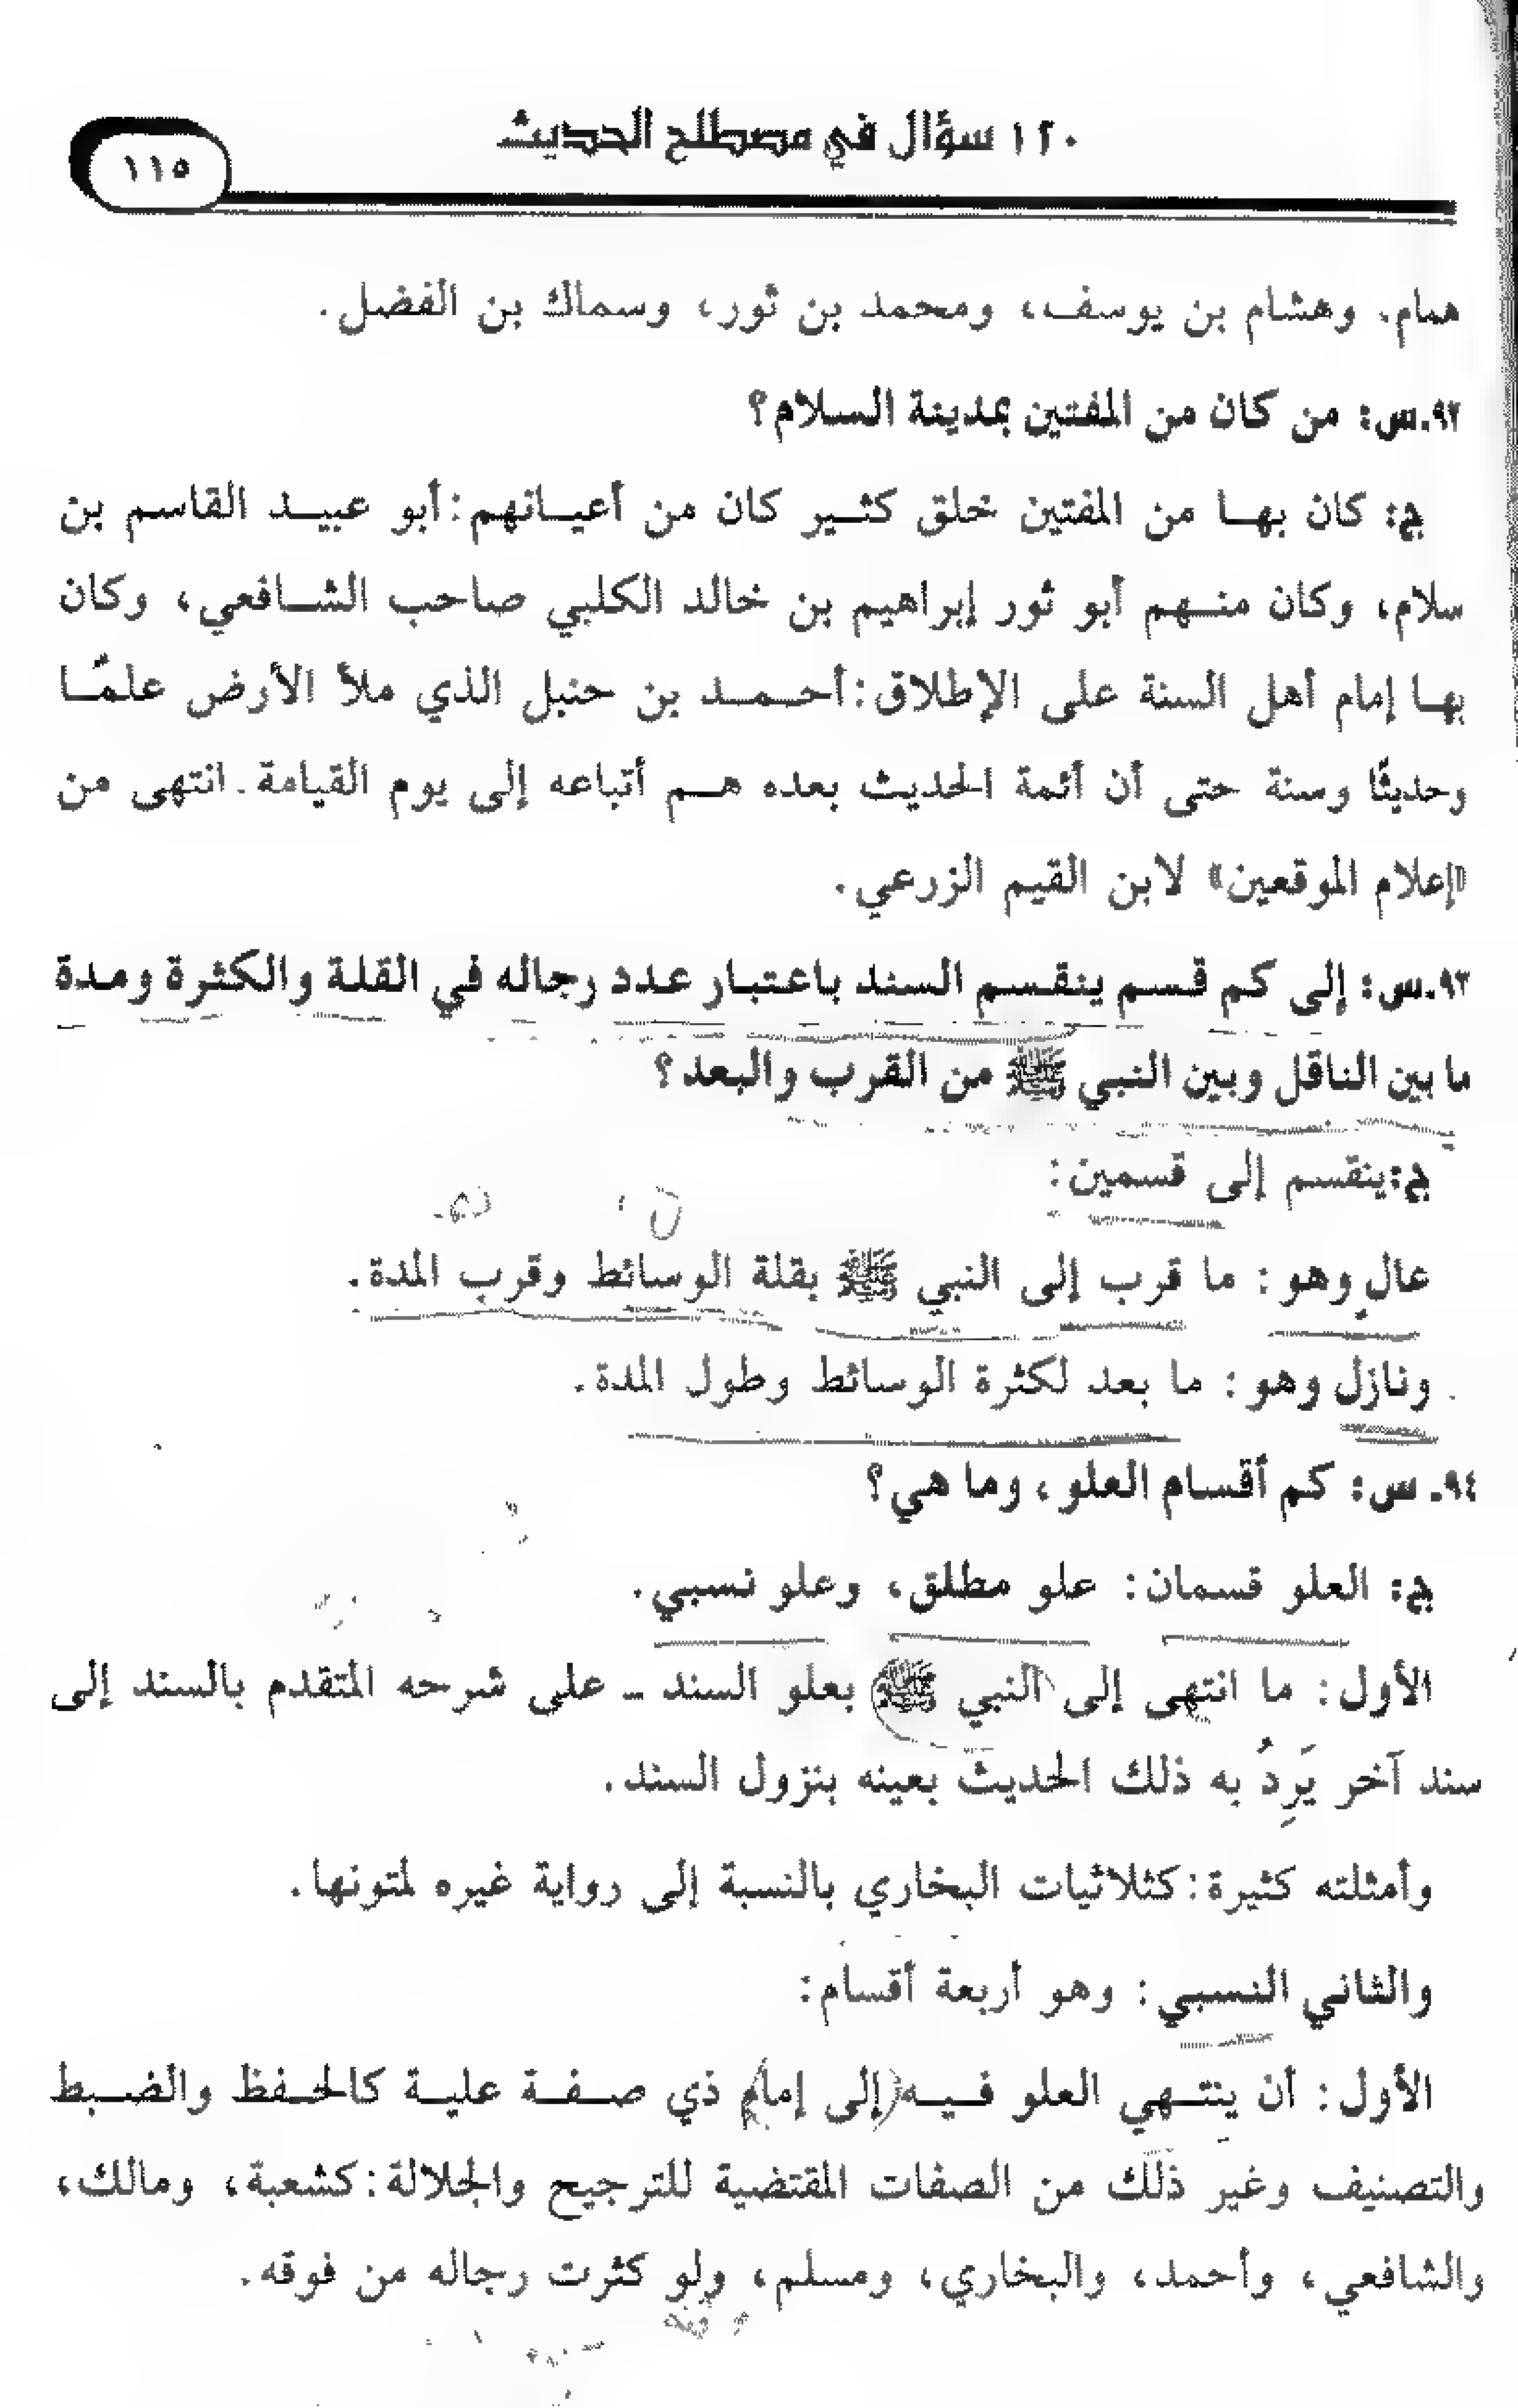 ١٢٠ سؤال في مصطلح الحديث
١١٥
همام. وهشام بن يوسف، ومحمد بن ثور، وسماك بن الفضل.
٩٢.س: من كان من المفتين بمدينة السلام؟
ج: كان بها من المفتين خلق كثير كان من أعيانهم: أبو عبيد القاسم بن
سلام، وكان منهم أبو ثور إبراهيم بن خالد الكلبي صاحب الشافعي، وكان
بها إمام أهل السنة على الإطلاق: أحمد بن حنبل الذي ملأ الأرض علمًا
وحديثًا وسنة حتى أن أئمة الحديث بعده هم أتباعه إلى يوم القيامة. انتهى من
«إعلام الموقعين» لابن القيم الزرعي.
٩٣.س: إلى كم قسم ينقسم السند باعتبار عدد رجاله في القلة والكثرة ومدة
ما بين الناقل وبين النبي ﷺ من القرب والبعد؟
ج: ينقسم إلى قسمين:
عالٍ وهو: ما قرب إلى النبي ﷺ بقلة الوسائط وقرب المدة.
ونازل وهو: ما بعد لكثرة الوسائط وطول المدة.
٩٤. س: كم أقسام العلو، وما هي؟
ج: العلو قسمان: علو مطلق، وعلو نسبي.
الأول: ما انتهى إلى النبي ﷺ بعلو السند ـ على شرحه المتقدم بالسند إلى
سند آخر يَرِدُ به ذلك الحديث بعينه بنزول السند.
وأمثلته كثيرة: كثلاثيات البخاري بالنسبة إلى رواية غيره لمتونها.
والثاني النسبي: وهو أربعة أقسام:
الأول: أن ينتهي العلو فيه (إلى إمام) ذي صفة علية كالحفظ والضبط
والتصنيف وغير ذلك من الصفات المقتضية للترجيح والجلالة: كشعبة، ومالك،
والشافعي، وأحمد، والبخاري، ومسلم، ولو كثرت رجاله من فوقه.